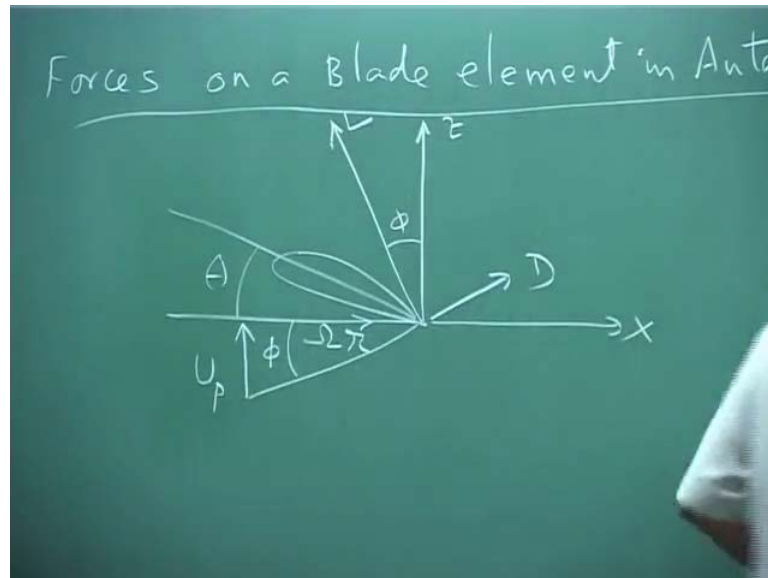 Forces on a Blade element in Auto
L
z
ϕ
θ
D
Ωr
X
ϕ
U_p